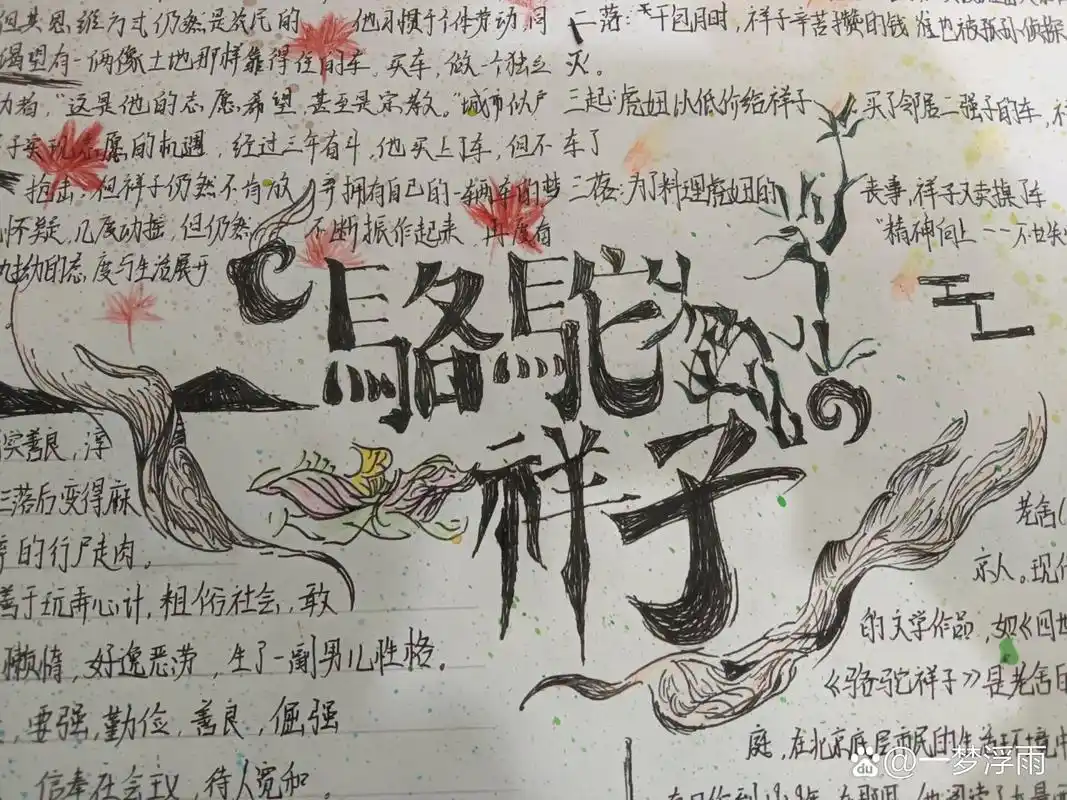 但其思维方式仍然是农民的 他习惯于个体劳动,同
渴望有一俩像土地那样靠得住的车。买车,做一个独立
力者,"这是他的志愿,希望,甚至是宗教。"城市似乎
子实现志愿的机遇,经过三年奋斗,他买上了车,但不
抢击,但祥子仍然不肯放 弃拥有自己的一辆车的梦
怀疑,几度动摇,但仍然 不断振作起来,再度奋
的态度与生活展开
二落:干包月时,祥子辛苦攒的钱 也被孙侦探
灭。
三起:虎妞以低价给祥子 买了邻居二强子的车,祥
车了
三落:为了料理虎妞的 丧事,祥子又卖掉了车
"精神向上--不甘失
駱駝
祥子
实善良,淳
三落后变得麻
的行尸走肉。
善于玩弄心计,粗俗社会,敢
懒惰,好逸恶劳,生了一副男儿性格。
要强,勤俭,善良,倔强
信奉社会主义,待人宽和。
老舍(
京人。现代
的文学作品,如《四世
《骆驼祥子》是老舍的
庭,在北京底层市民的生活环境中
@一梦浮雨